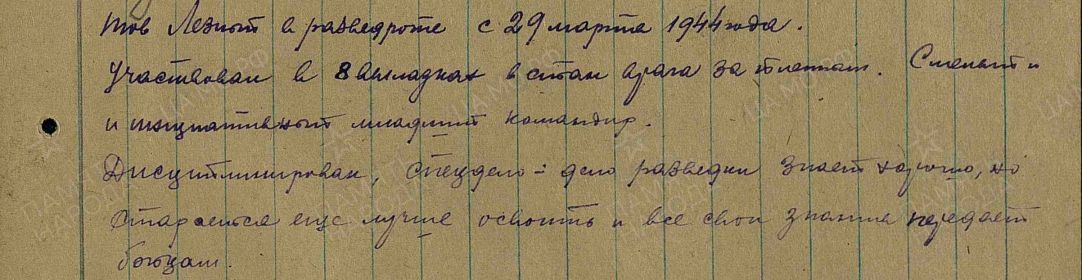 тов Лезный в разведроте с 29 марта 1944 года.
Участвовал в 8 вылазках в стан врага за пленным. Смелый и
и инициативный младший командир.
Дисциплинирован, спецдело = дело разведки знает хорошо, но
старается еще лучше освоить и все свои знания передает
бойцам.